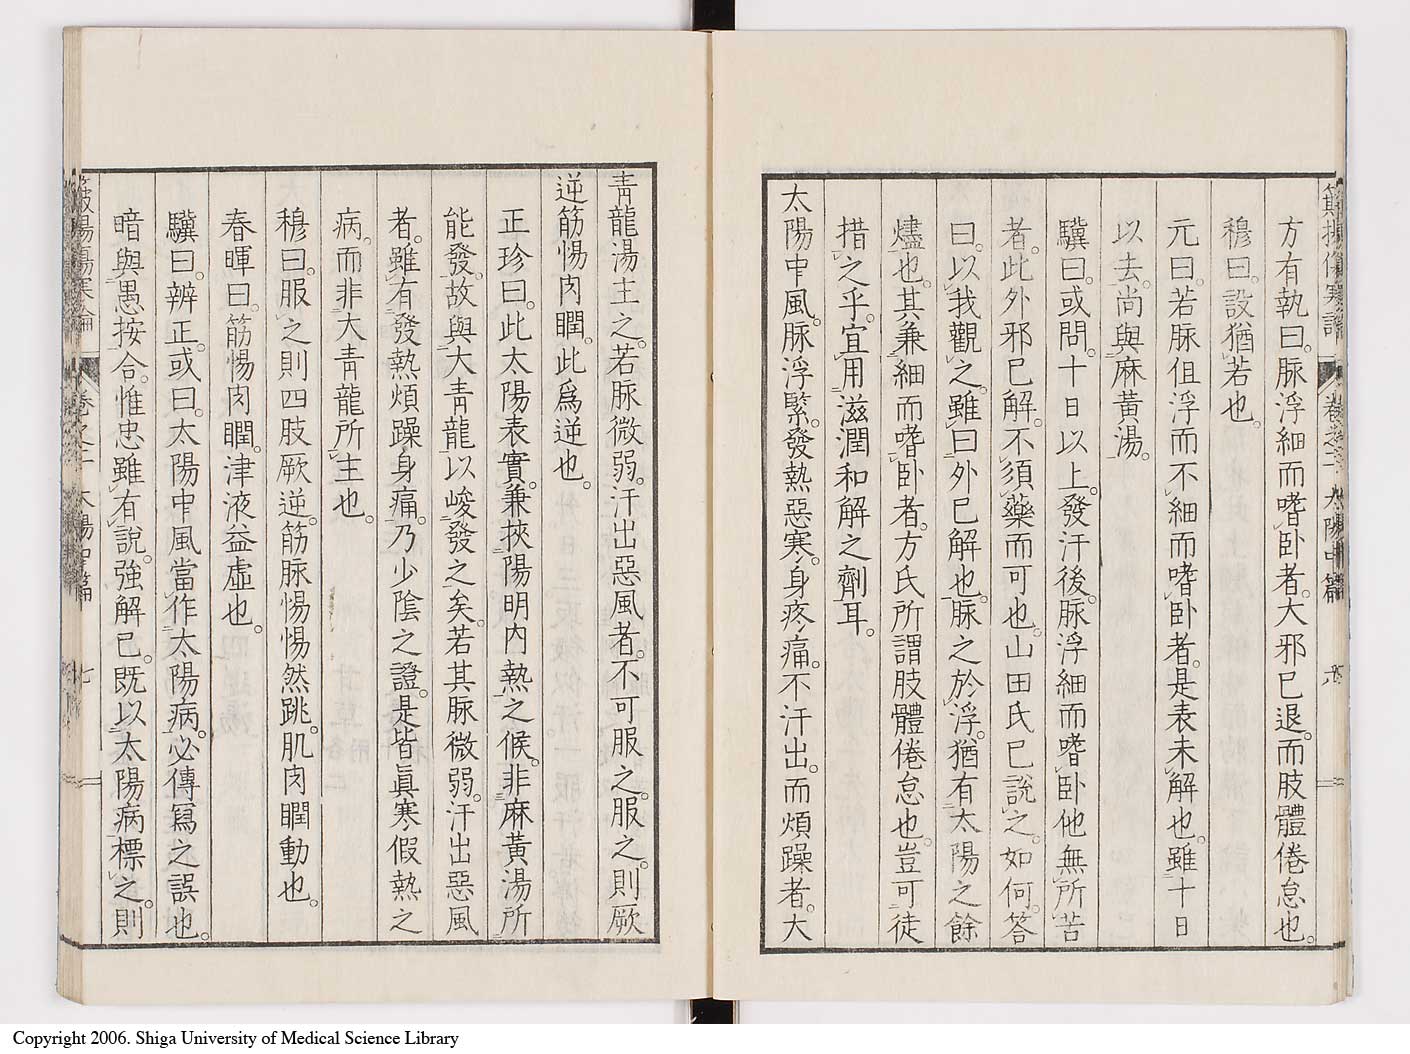 方有執曰。脈浮細而嗜卧者。大邪已退。而肢體倦怠也。
穆曰。設猶若也。
元曰。若脈但浮而不細而嗜卧者。是表未解也。雖十日
以去。尚與麻黃湯。
驥曰。或問。十日以上。發汗後。脈浮細而嗜卧他無所苦
者。此外邪已解。不須藥而可也。山田氏已說之。如何。答
曰。以我觀之。雖曰外已解也。脈之於浮。猶有太陽之餘
燼也。其兼細而嗜卧者。方氏所謂肢體倦怠也。豈可徒
措之乎。宜用滋潤和解之劑耳。
太陽中風。脈浮緊。發熱惡寒。身疼痛。不汗出。而煩躁者。大
青龍湯主之。若脈微弱。汗出惡風者。不可服之。服之。則厥
逆筋惕肉瞤。此爲逆也。
正珍曰。此太陽表實。兼挾陽明內熱之候。非麻黃湯所
能發。故與大青龍以峻發之矣。若其脈微弱。汗出惡風
者。雖有發熱煩躁身痛。乃少陰之證。是皆眞寒假熱之
病。而非大青龍所主也。
穆曰。服之則四肢厥逆。筋脈惕惕然跳。肌肉瞤動也。
春暉曰。筋惕肉瞤。津液益虛也。
驥曰。辨正。或曰。太陽中風當作太陽病。必傳寫之誤也。
暗與愚按合。惟忠雖有說。強解已。既以太陽病標之。則
卷之二 太陽中篇 七
Copyright 2006. Shiga University of Medical Science Library